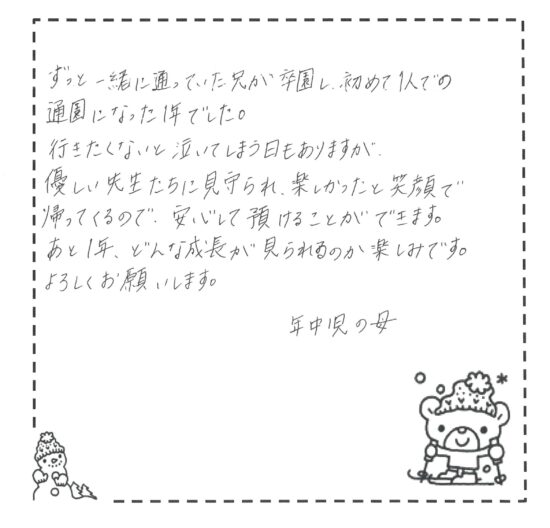 ずっと一緒に通っていた兄が卒園し、初めて1人での
通園になった1年でした。
行きたくないと泣いてしまう日もありますが、
優しい先生たちに見守られ、楽しかったと笑顔で
帰ってくるので、安心して預けることができます。
あと1年、どんな成長が見られるのか楽しみです。
よろしくお願いします。
年中児の母